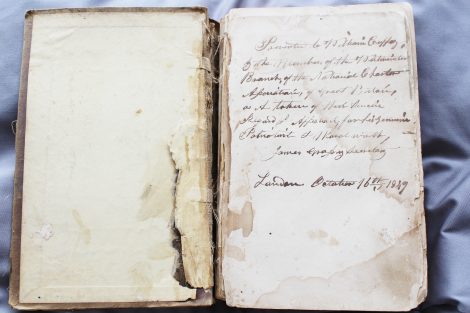 Presented to William Cuffay,
by the Members of the Westminster
Branch, of the National Charter
Association, of Great Britain,
as A token of their sincere
regard & Approval for his genuine
Patriotism & Moral worth
James Grassby Secretary
London October 16th 1849